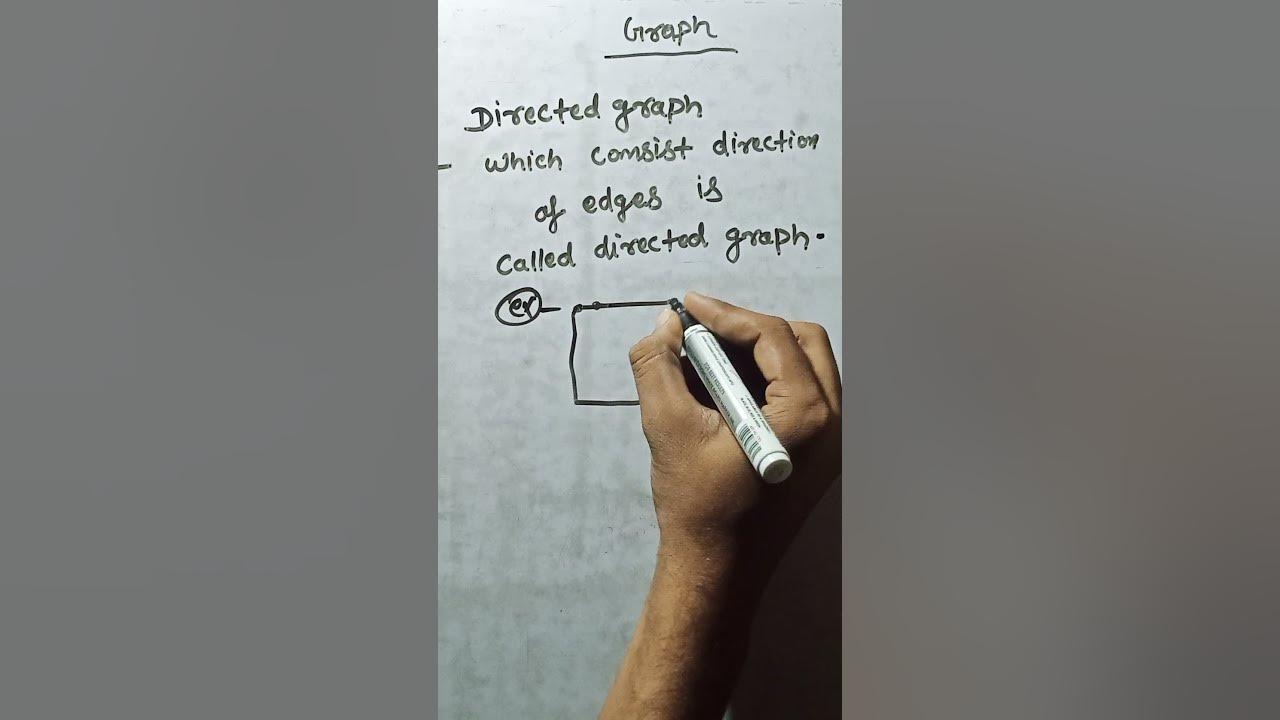 Graph
Directed graph
- which consist direction
of edges is
called directed graph.
ex -